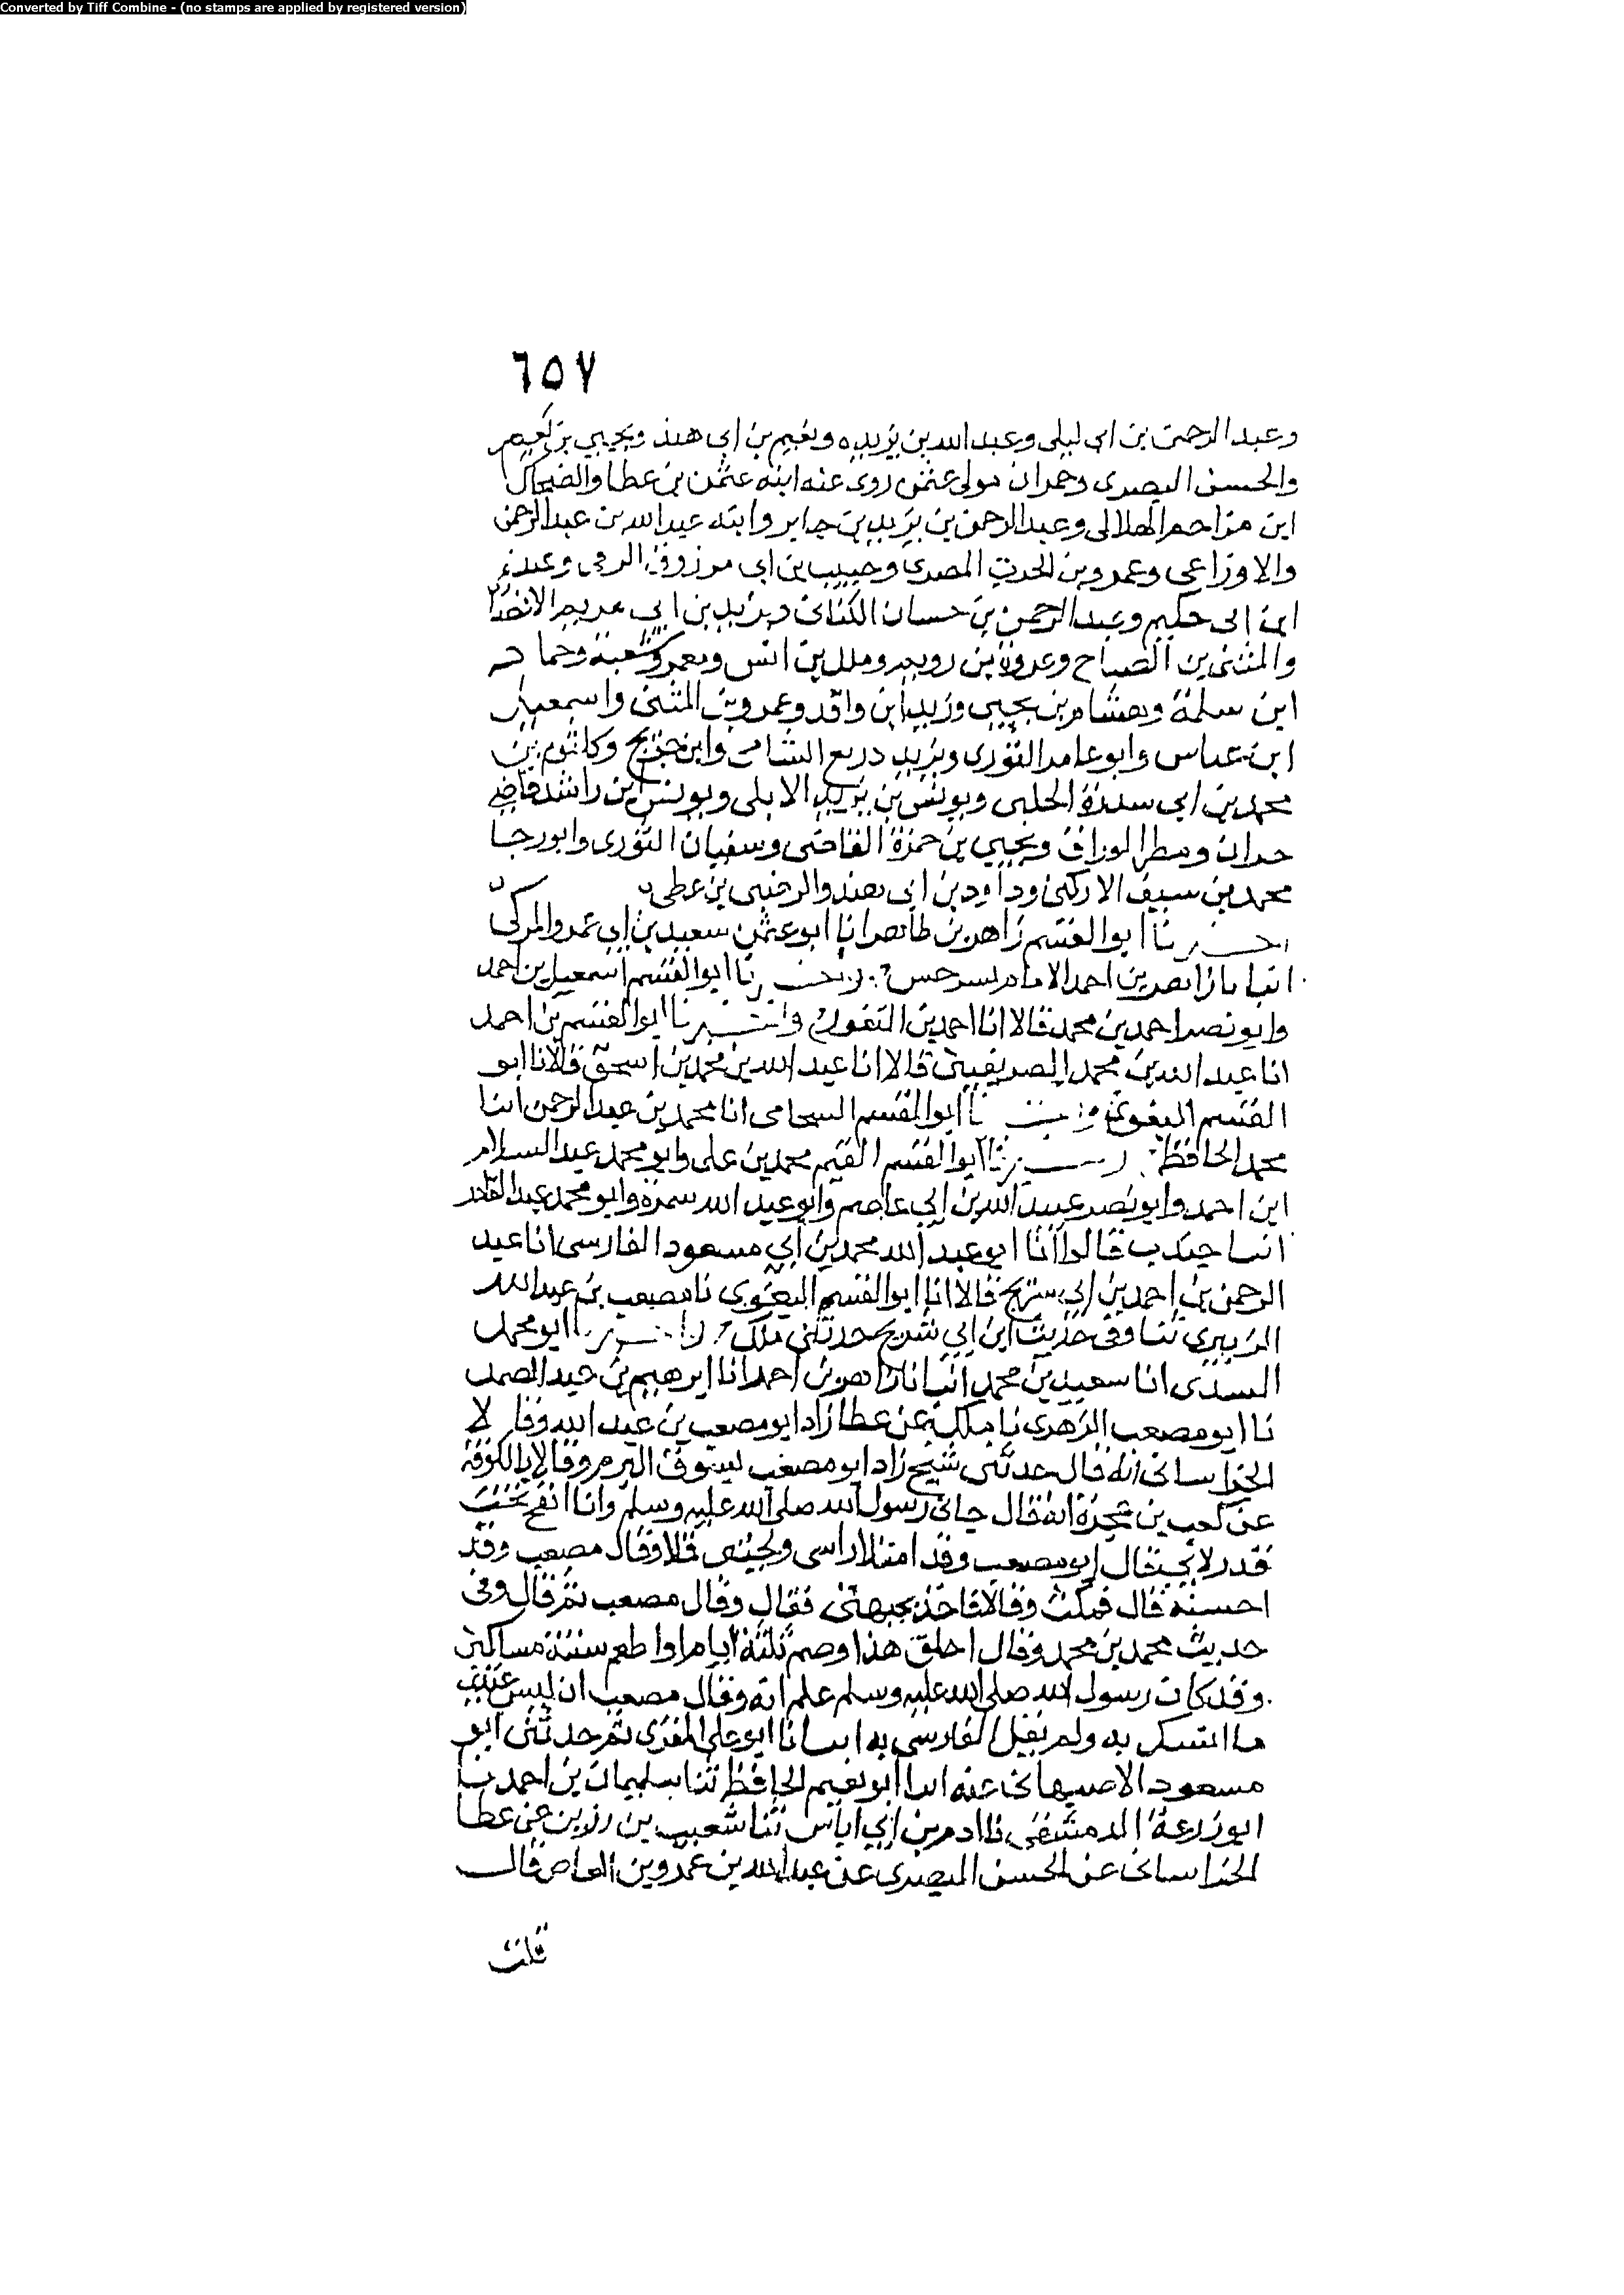 Converted by Tiff Combine - (no stamps are applied by registered version)
٦٥٧
وعبد الرحمن بن ابي ليلى وعبد الله بن بريده ونعيم بن ابي هند ويحيي بن يعمر
والحسن البصرى وحمران مولى عثمن روى عنه ابنه عثمن بن عطا والضحاك
ابن مزاحم الهلالى وعبد الرحمن بن يزيد بن جابر وابنه عبد الله بن عبد الرحمن
والاوزاعي وعمرو بن الحرث المصرى وحبيب بن ابي مرزوق الرقى وعتبة
ابن ابى حكيم وعبد الرحمن بن حسان الكنانى ويزيد بن ابي مريم الانصار
والمثنى بن الصباح وعروة بن رويم وملك بن انس ومعمر وشعبة وحماد
ابن سلمة وهشام بن يحيي وزيد ابن واقد وعمرو بن المثنى واسمعيل
ابن عياش وابو عامر الثورى ويزيد ذريع الشامى وابن جريج وكلثوم بن
محمد بن ابي سدرة الحلبى ويونس بن يزيد الايلى ويونس بن راشد قاضى
حران ومطر الوراق ويحيي بن حمزة القاضى وسفيان الثورى وابو رجا
محمد بن سيف الازدى وداود بن ابى هند والرحبى بن عطى
اخبرنا ابو القسم زاهر بن طاهر انا ابو عثمن سعيد بن ابي عمرو المزكى
انبانا زاهر بن احمد الامام بسرخس واخبرنا ابو القسم اسمعيل بن احمد
وابو نصر احمد بن محمد قالا انا احمد بن النقور واخبرنا ابو القسم بن احمد
انا عبد الله بن محمد الصريفينى قالا انا عبد الله بن محمد بن اسحق قالا نا ابو
القسم البغوى واخبرنا ابو القسم الشحامى انا محمد بن عبد الرحمن انبا
محمد الحافظ واخبرنا ابو القسم القيم محمد بن على وابو محمد عبد السلام
ابن احمد وابو نصر عبيد الله بن ابي عاصم وابو عبد الله سمرة وابو محمد عبد القادر
قالوا انا ابو عبد الله محمد بن ابي مسعود الفارسى انا عبد
الرحمن بن احمد بن ابي شريح قالا انا ابو القسم البغوى نا مصعب بن عبد الله
الزبيرى ثنا وفى حديث ابن ابي شريح حدثنى ملك واخبرنا ابو محمد
السدى انا سعيد بن محمد انبانا زاهر بن احمد انا ابرهيم بن عبد الصمد
نا ابو مصعب الزهرى نا ملك عن عطا زاد ابو مصعب بن عبد الله وقالا
الخراسانى انه قال حدثنى شيخ زاد ابو مصعب بسوق البرم وقالا بالكوفة
عن كعب بن عجرة انه قال جانى رسول الله صلى الله عليه وسلم وانا انفخ تحت
قدر لاصحابى قال ابو مصعب وقد امتلا راسى ولحيتى قملا وقال مصعب وقد
قال وقالا فاخذ بجبهتى فقال وقال مصعب ثم قال وفى
حديث محمد بن محمد وقال احلق هذا وصم ثلثة ايام او اطعم ستة مساكين
وقد كان رسول الله صلى الله عليه وسلم علم انه وقال مصعب ان ليس عندى
ما انسك به ولم يقل الفارسى به انبانا ابو على المقرى ثم حدثنى ابو
مسعود الاصبهانى عنه انبا ابو نعيم الحافظ ثنا سليمان بن احمد نا
ابو زرعة الدمشقى نا ادم بن ابي اياس ثنا شعيب بن رزين عن عطا
الخراسانى عن الحسن البصرى عن عبد الله بن عمرو بن العاص قال
قلت